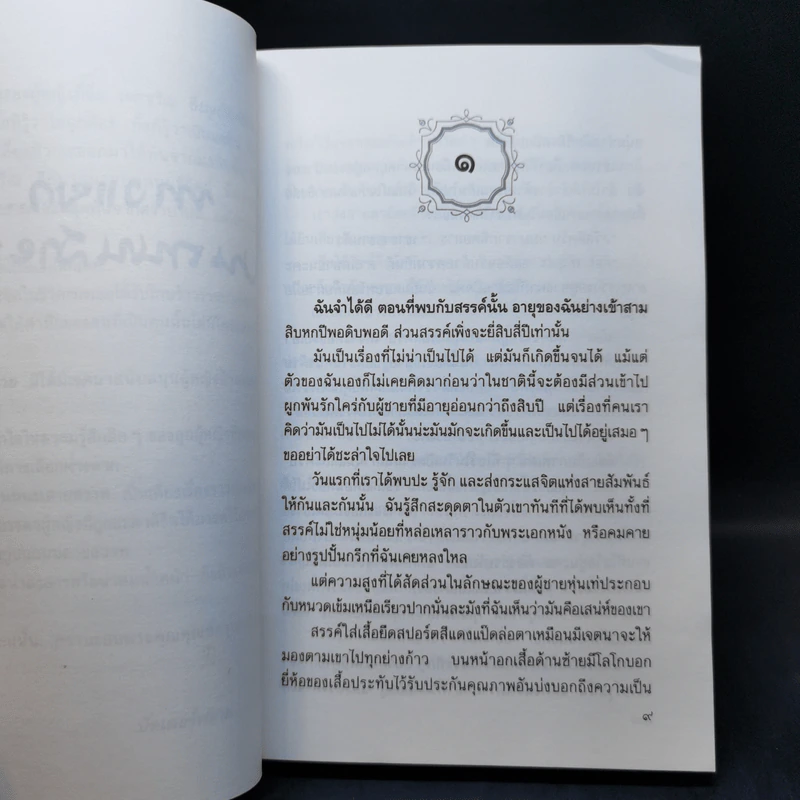 ๑
ฉันจำได้ดี ตอนที่พบกับสรรค์นั้น อายุของฉันย่างเข้าสาม
สิบหกปีพอดิบพอดี ส่วนสรรค์เพิ่งจะยี่สิบสี่ปีเท่านั้น
มันเป็นเรื่องที่ไม่น่าเป็นไปได้ แต่มันก็เกิดขึ้นจนได้ แม้แต่
ตัวของฉันเองก็ไม่เคยคิดมาก่อนว่าในชาตินี้จะต้องมีส่วนเข้าไป
ผูกพันรักใคร่กับผู้ชายที่มีอายุอ่อนกว่าถึงสิบปี แต่เรื่องที่คนเรา
คิดว่ามันเป็นไปไม่ได้นั้นน่ะมันมักจะเกิดขึ้นและเป็นไปได้อยู่เสมอ ๆ
ขออย่าได้ชะล่าใจไปเลย
วันแรกที่เราได้พบปะ รู้จัก และส่งกระแสจิตแห่งสายสัมพันธ์
ให้กันและกันนั้น ฉันรู้สึกสะดุดตาในตัวเขาทันทีที่ได้พบเห็นทั้งที่
สรรค์ไม่ใช่หนุ่มน้อยที่หล่อเหลาราวกับพระเอกหนัง หรือคมคาย
อย่างรูปปั้นกรีกที่ฉันเคยหลงใหล
แต่ความสูงที่ได้สัดส่วนในลักษณะของผู้ชายหุ่นเท่ประกอบ
กับหนวดเข้มเหนือเรียวปากนั่นละมังที่ฉันเห็นว่ามันคือเสน่ห์ของเขา
สรรค์ใส่เสื้อยืดสปอร์ตสีแดงแป๊ดล่อตาเหมือนมีเจตนาจะให้
มองตามเขาไปทุกย่างก้าว บนหน้าอกเสื้อด้านซ้ายมีโลโกบอก
ยี่ห้อของเสื้อประทับไว้รับประกันคุณภาพอันบ่งบอกถึงความเป็น
๙